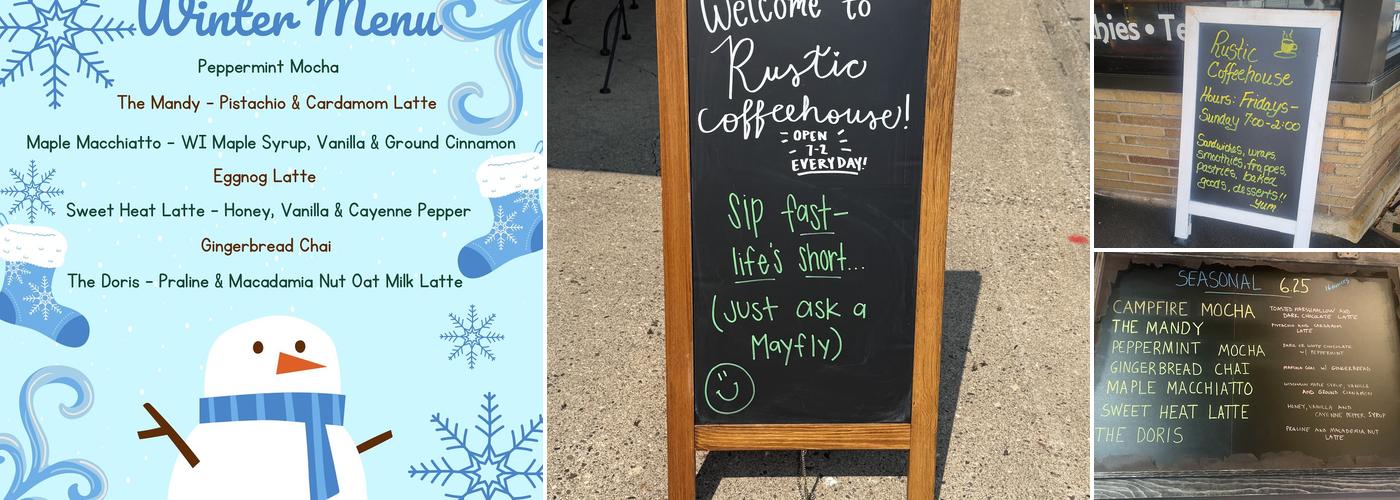 Winter Menu
Peppermint Mocha
The Mandy - Pistachio & Cardamom Latte
Maple Macchiatto - WI Maple Syrup, Vanilla & Ground Cinnamon
Eggnog Latte
Sweet Heat Latte - Honey, Vanilla & Cayenne Pepper
Gingerbread Chai
The Doris - Praline & Macadamia Nut Oat Milk Latte
Welcome to
Rustic
coffeehouse!
OPEN
7-2
EVERYDAY!
Sip fast-
life's short...
(Just ask a
Mayfly)
hies • Te
Rustic
Coffeehouse
Hours: Fridays-
Sunday 7:00-2:00
Sandwiches, wraps,
smoothies, frappes,
pastries, baked
goods, desserts!!
-yum
SEASONAL 6.25
CAMPFIRE MOCHA TOASTED MARSHMALLOW AND
DARK CHOCOLATE LATTE
THE MANDY PISTACHIO AND CARDAMOM
LATTE
PEPPERMINT MOCHA DARK OR WHITE CHOCOLATE
w/ PEPPERMINT
GINGERBREAD CHAI MASALA CHAI w/ GINGERBREAD
MAPLE MACCHIATTO WISCONSIN MAPLE SYRUP, VANILLA
AND GROUND CINNAMON
SWEET HEAT LATTE HONEY, VANILLA AND
CAYENNE PEPPER SYRUP
THE DORIS PRALINE AND MACADAMIA NUT
LATTE